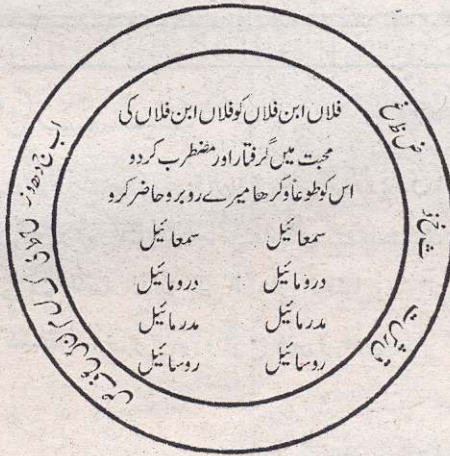 فلاں ابن فلاں کو فلاں ابن فلاں کی
محبت میں گرفتار اور مضطرب کر دو
اس کو طوعاً و کرھا میرے روبرو حاضر کرو
سمعائیل سمعائیل
درومائیل درومائیل
مدرمائیل مدرمائیل
روسائیل روسائیل
اب ج د ھ و ز
ض ظ غ
ث خ ذ
ق ر ش ت